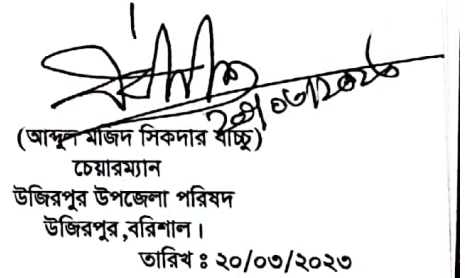 (আব্দুল মজিদ সিকদার বাচ্চু)
চেয়ারম্যান
উজিরপুর উপজেলা পরিষদ
উজিরপুর,বরিশাল।
তারিখ ঃ ২০/০৩/২০২৩